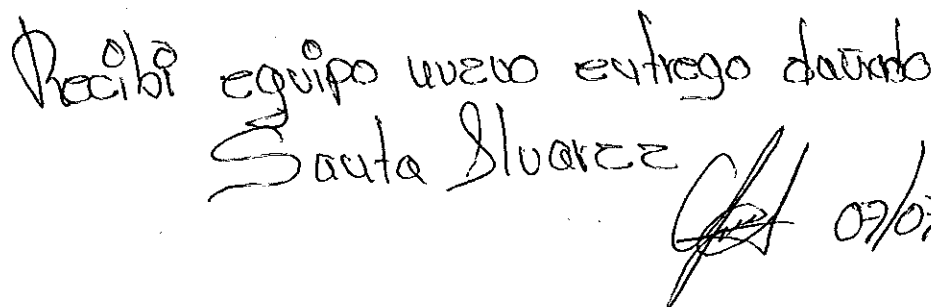 Recibi equipo nuevo entrego dañado
Santa Alvarez
07/07